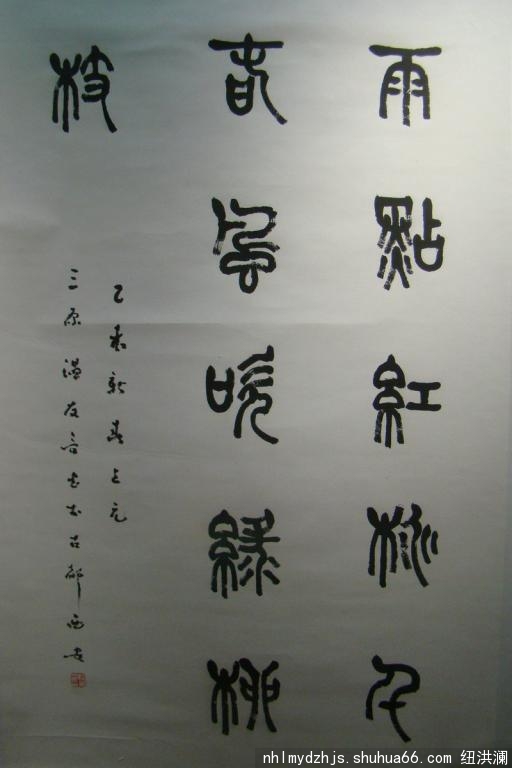 雨點紅桃千
風吹綠柳
枝
乙 新春上元
三原溫友言書於古都西安
nhlmydzhjs.shuhua66.com 纽洪澜